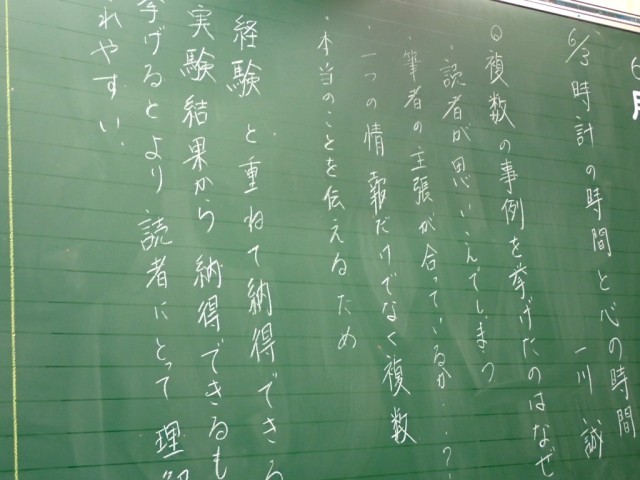 6月
6/3 時計の時間と心の時間
一川 誠
Q 複数の事例を挙げたのはなぜ
・読者が思いこんでしまう
・筆者の主張が合っているか…?
・一つの情報だけでなく複数
・本当のことを伝えるため
経験と重ねて納得できる
実験結果から納得できるも
挙げるとより読者にとって理解
れやすい。